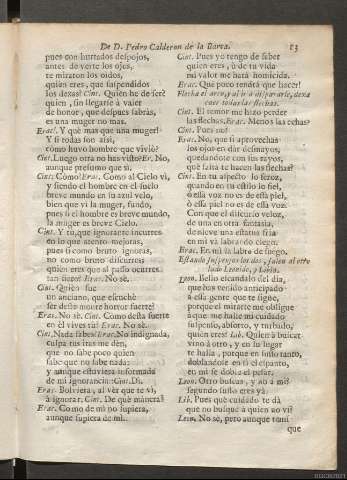 De D. Pedro Calderon de la Barca. 13
pues con hurtados despojos,
antes de verte los ojos,
te miraron los oidos,
quien eres, que suspendidos
los dexas? Cint. Quien he de ser?
quien, sin llegarte à vèr
de honor, que despues sabràs,
es una muger no mas.
Erac. Y què mas que una muger?
Y si todas son assi,
còmo huvo hombre que viviò?
Cint. Luego otra no has visto? Er. No,
aunque presumo que si.
Cint. Còmo? Erac. Como al Cielo vi,
y siendo el hombre en el suelo
breve mundo en su azul velo,
bien que vi la muger, fundo,
pues si el hombre es breve mundo,
la muger es breve Cielo.
Cint. Y tu, que ignorante incurres
en lo que atento mejoras,
pues si como bruto ignoras,
no como bruto discurres:
quien eres que al passo ocurres
tan fiero? Erac. No sè.
Cint. Quien fue
un anciano, que escuchè
ser deste monte horror fuerte?
Erac. No sè. Cint. Como desta suerte
en èl vives tu? Erac. No sè.
Cint. Nada sabes? Erac. No indignada,
culpa tus iras me dèn,
que no sabe poco quien
sabe que no sabe nada:
y aunque estuviera informada
de mi ignorancia: Cint. Di.
Erac. Bolviera, al vèr que te vi,
à ignorar. Cint. De què manera?
Erac. Como de mi no supiera,
aunque supiera de mi.
Cint. Pues yo tengo de saber
quien eres, ù de tu vida
mi valor me harà homicida.
Erac. Que poco tendrà que hacer!
Flecha el arco, y al ir à dispararle, dexa
caer todas las flechas.
Cint. El temor me hizo perder
las flechas. Erac. Menos las echas?
Cint. Pues no?
Erac. No, que si aprovechas
los ojos en dàr desmayos,
quedandote con tus rayos,
què falta te hacen las flechas?
Cint. En tu aspecto lo feroz,
quando en tu estilo lo fiel,
ò essa voz no es de essa piel,
ò essa piel no es de essa voz.
Con que el discurso veloz,
de una en otra fantasia,
de nieve una estatua fria
en mi và labrando ciego.
Erac. En mi la labre de fuego.
Estando suspensos los dos, salen al otro
lado Leonido, y Libia.
Leon. Bello escandalo del dia,
que has venido anticipado
à essa gente que te sigue,
porque el mirarte me obligue
à que me halle mi cuidado
suspenso, absorto, y turbado,
quien eres? Lib. Quien à buscar
vino à otro, y en su lugar
te halla, porque en susto tanto,
doblandole en ti el espanto,
en mi se dobla el pesar.
Leon. Otro buscas, y no à mi?
segundo susto eres yà.
Lib. Pues què cuidado te dà
que no busque à quien no vi?
Leon. No se, pero aunque
que